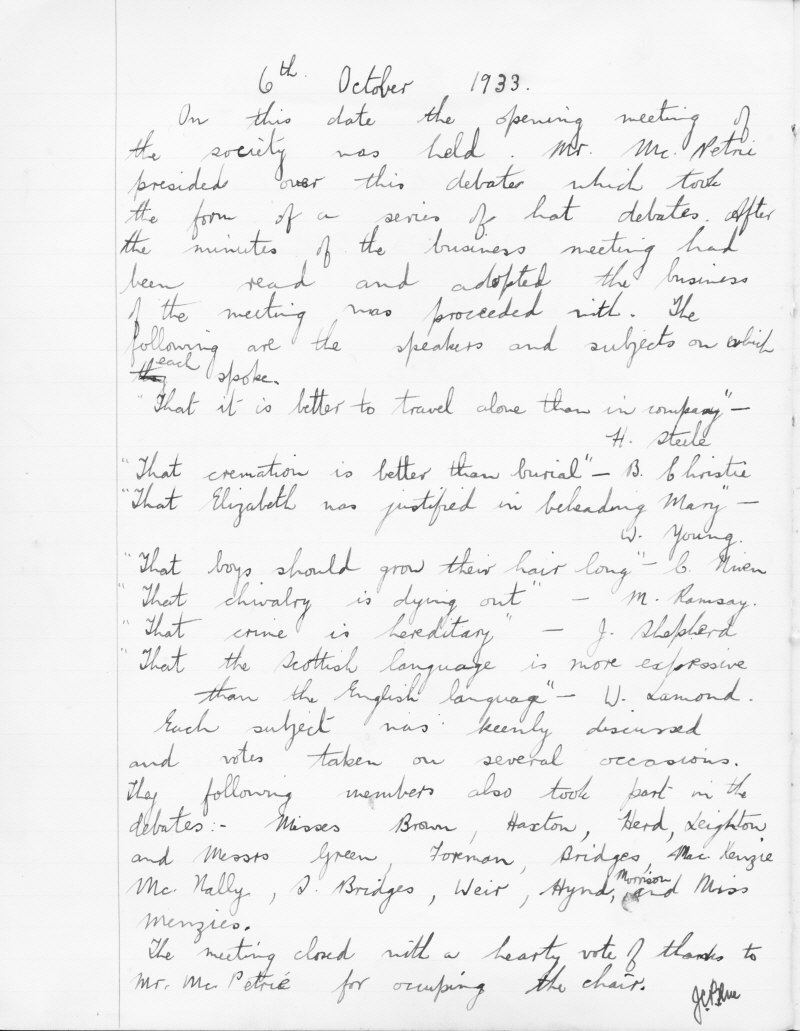 6th October 1933.
On this date the opening meeting of
the society was held. Mr. Mc. Petrie
presided over this debate which took
the form of a series of hat debates. After
the minutes of the business meeting had
been read and adopted the business
of the meeting was proceeded with. The
following are the speakers and subjects on which
each
they spoke.
"That it is better to travel alone than in company" —
H. Steele
"That cremation is better than burial" — B. Christie
"That Elizabeth was justified in beheading Mary" —
W. Young.
"That boys should grow their hair long" — C. Niven
"That chivalry is dying out" — M. Ramsay.
"That crime is hereditary" — J. Shepherd
"That the Scottish language is more expressive
than the English language" — W. Lamond.
Each subject was keenly discussed
and votes taken on several occasions.
They following members also took part in the
debates:- Misses Brown, Haxton, Herd, Leighton
and Messrs Green, Forman, Bridges, MacKenzie
Mc. Nally, S. Bridges, Weir, Hynd, Morrison and Miss
Menzies.
The meeting closed with a hearty vote of thanks to
Mr. Mc Petrie for occuping the chair.